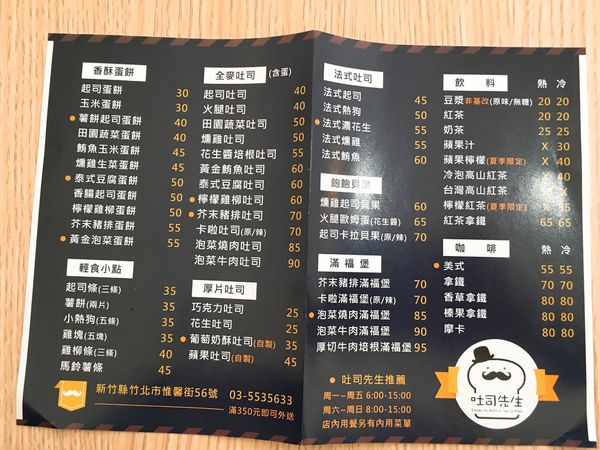 香酥蛋餅
起司蛋餅 30
玉米蛋餅 30
●薯餅起司蛋餅 40
田園蔬菜蛋餅 40
鮪魚玉米蛋餅 45
燻雞生菜蛋餅 45
●泰式豆腐蛋餅 50
香腸起司蛋餅 50
檸檬雞柳蛋餅 50
芥末豬排蛋餅 55
●黃金泡菜蛋餅 55
輕食小點
起司條(三條) 35
薯餅(兩片) 35
小熱狗(五條) 35
雞塊(五塊) 35
雞柳條(三條) 40
馬鈴薯條 45
全麥吐司(含蛋)
起司吐司 40
火腿吐司 40
田園蔬菜吐司 50
燻雞吐司 50
花生醬培根吐司 55
黃金鮪魚吐司 60
泰式豆腐吐司 60
●檸檬雞柳吐司 60
●芥末豬排吐司 60
卡啦吐司(原/辣) 70
泡菜燒肉吐司 85
泡菜牛肉吐司 90
厚片吐司
巧克力吐司 25
花生吐司 25
●葡萄奶酥吐司(自製) 35
蘋果吐司(自製) 45
新竹縣竹北市惟馨街56號 03-5535633
滿350元即可外送
法式吐司
法式起司 45
法式熱狗 50
●法式濃花生 55
法式燻雞 55
法式鮪魚 60
飽飽貝果
燻雞起司貝果 60
火腿歐姆蛋(花生醬) 65
起司卡拉貝果(原/辣) 70
滿福堡
芥末豬排滿福堡 70
卡啦滿福堡(原/辣) 70
●泡菜燒肉滿福堡 85
泡菜牛肉滿福堡 90
厚切牛肉培根滿福堡 95
●吐司先生推薦
周一~周五 6:00-15:00
周六~周日 8:00-15:00
店內用餐另有內用菜單
飲料 熱 冷
豆漿非基改(原味/無糖) 20 20
紅茶 20 20
奶茶 25 25
蘋果汁 X 30
蘋果檸檬(夏季限定) X 40
冷泡高山紅茶 X 40
台灣高山紅茶
檸檬紅茶(夏季限定)
紅茶拿鐵 65 65
咖啡 熱 冷
●美式 55 55
拿鐵 70 70
香草拿鐵 80 80
榛果拿鐵 80 80
摩卡 80 80
吐司先生